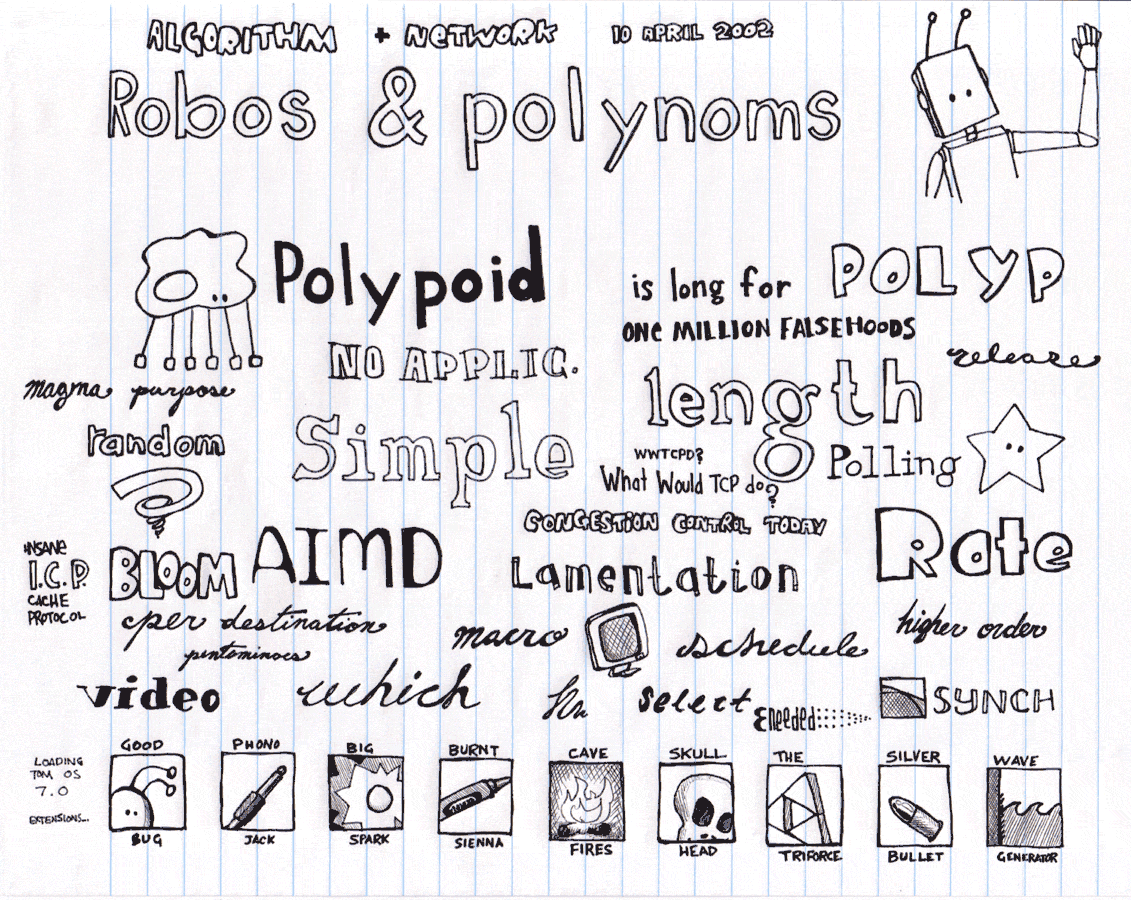 ALGORITHM + NETWORK 10 APRIL 2002
Robos & polynoms
Polypoid is long for POLYP
ONE MILLION FALSEHOODS
NO APPLIC.
release
magma purpose
length
random
Simple
WWTCPD?
What Would TCP do?
Polling
CONGESTION CONTROL TODAY
INSANE
I.C.P.
CACHE
PROTOCOL
BLOOM
AIMD
Lamentation
Rate
cper destination
pentominoes
macro
schedule
higher order
video
which
select
needed
SYNCH
LOADING
TOM OS
7.0
EXTENSIONS...
GOOD BUG
PHONO JACK
BIG SPARK
BURNT SIENNA
CAVE FIRES
SKULL HEAD
THE TRIFORCE
SILVER BULLET
WAVE GENERATOR